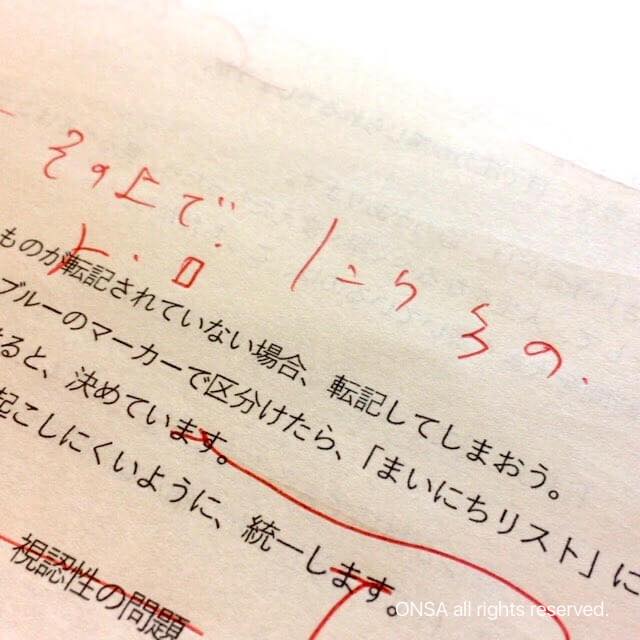 その上で
ものが転記されていない場合、転記してしまおう。
ブルーのマーカーで区分けたら、「まいにちリスト」に
ると、決めています。
起こしにくいように、統一します。
視認性の問題
ONSA all rights reserved.